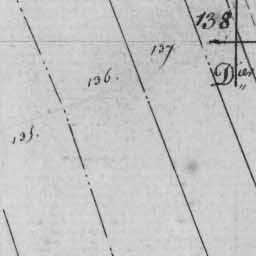 138
137
136.
135.
Dier